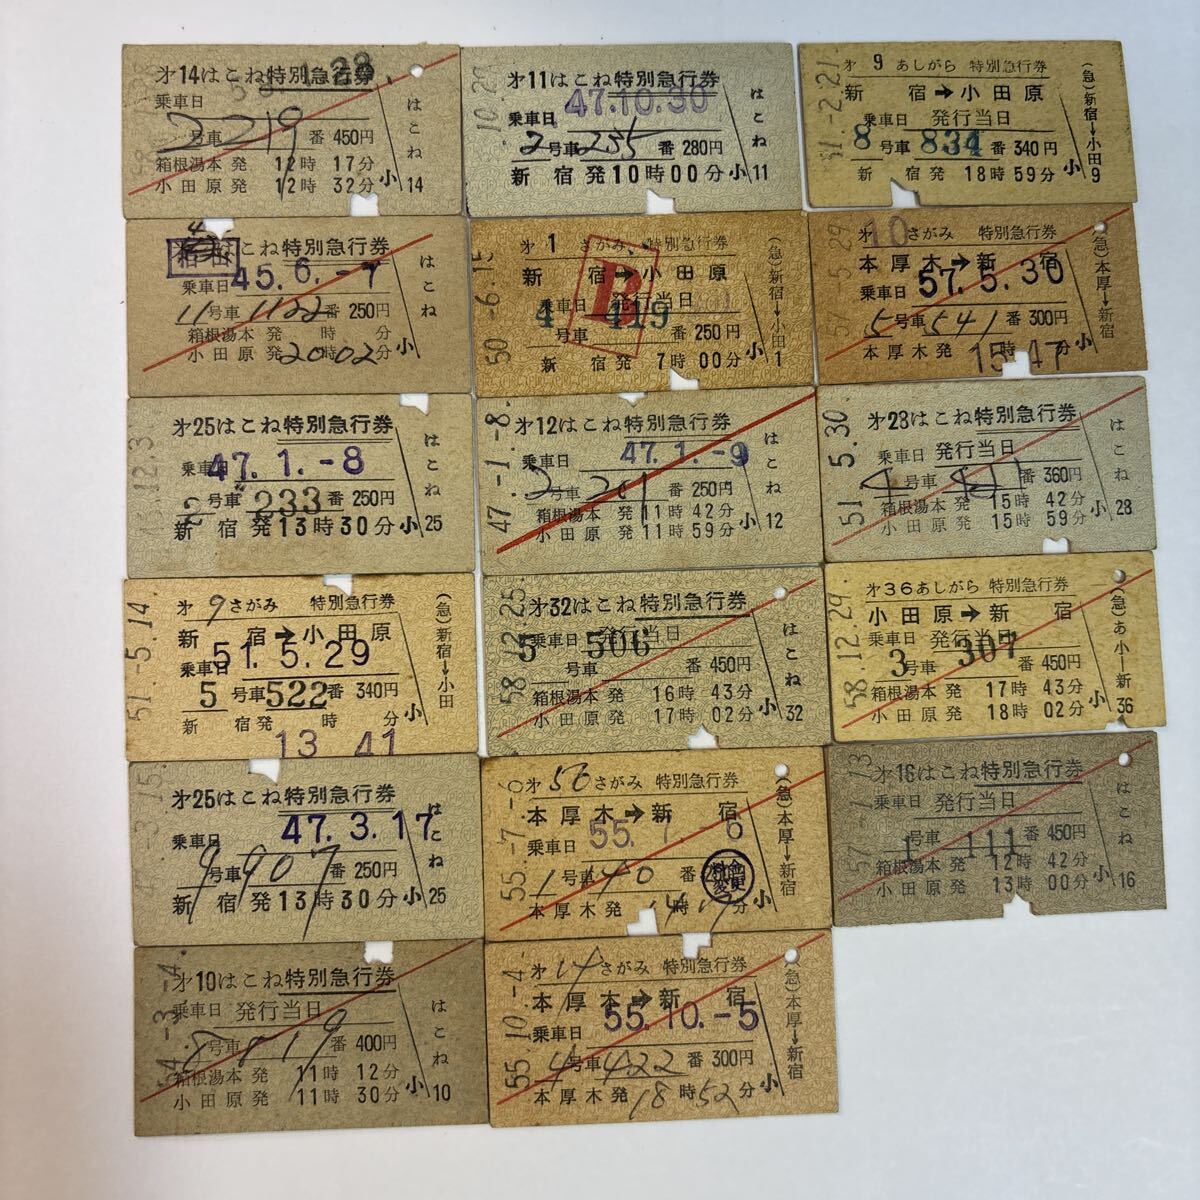 第14はこね特別急行券
乗車日
2号車219番 450円
箱根湯本発 12時17分
小田原発 12時32分
はこね
小14
第11はこね特別急行券
47.10.30
乗車日
2号車235番 280円
新宿発10時00分
はこね
小11
51.-2.21
第9 あしがら 特別急行券
新宿→小田原
乗車日 発行当日
8号車834番 340円
新宿発 18時59分
(急)新宿→小田
小9
はこね特別急行券
乗車日 45.6.-7
11号車1122番 250円
箱根湯本発 時 分
小田原発 20時02分
はこね
小
50.-6.15
第1 さがみ 特別急行券
新宿→小田原
乗車日 発行当日
B
4号車419番 250円
新宿発 7時00分
(急)新宿→小田
小1
57.-5.29
第10さがみ 特別急行券
本厚木→新宿
乗車日 57.5.30
5号車541番 300円
本厚木発 15時47分
(急)本厚→新宿
小
第25はこね特別急行券
47.1.-8
乗車日
号車233番 250円
新宿発13時30分
はこね
小25
47.-1.-8.
第12はこね特別急行券
乗車日 47.1.-9
2号車201番 250円
箱根湯本発 11時42分
小田原発 11時59分
はこね
小12
51.5.30.
第28はこね特別急行券
乗車日 発行当日
4号車 番 360円
箱根湯本発 15時42分
小田原発 15時59分
はこね
小28
51.-5.14.
第9さがみ 特別急行券
新宿→小田原
乗車日 51.5.29
5号車522番 340円
新宿発 時 分
13 41
(急)新宿→小田
小
58.12.25.
第32はこね特別急行券
乗車日 発行当日
5号車506番 450円
箱根湯本発 16時43分
小田原発 17時02分
はこね
小32
58.12.29.
第36あしがら 特別急行券
小田原→新宿
乗車日 発行当日
3号車307番 450円
箱根湯本発 17時43分
小田原発 18時02分
(急)あ小―新
小36
第25はこね特別急行券
47.3.17
乗車日
9号車907番 250円
新宿発13時30分
はこね
小25
55.-7.-6
第56さがみ 特別急行券
本厚木→新宿
乗車日 55.7 6
1号車40番
料金変更
本厚木発 14時17分
(急)本厚→新宿
小
57.-1.13
第16はこね特別急行券
乗車日 発行当日
1号車111番 450円
箱根湯本発 12時42分
小田原発 13時00分
はこね
小16
54.-3.-4.
第10はこね特別急行券
乗車日 発行当日
8号車819番 400円
箱根湯本発 11時12分
小田原発 11時30分
はこね
小10
55.10.-4.
第14さがみ 特別急行券
本厚木→新宿
乗車日 55.10.-5
4号車422番 300円
本厚木発 18時52分
(急)本厚→新宿
小